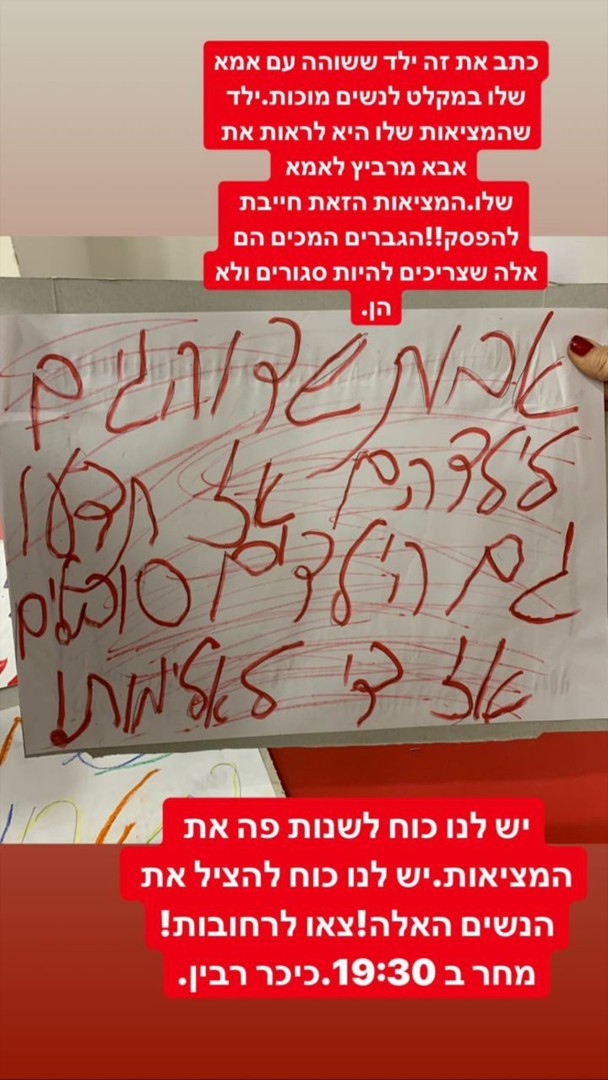 כתב את זה ילד ששוהה עם אמא
שלו במקלט לנשים מוכות.ילד
שהמציאות שלו היא לראות את
אבא מרביץ לאמא
שלו.המציאות הזאת חייבת
להפסק!!הגברים המכים הם
אלה שצריכים להיות סגורים ולא
הן.
אבות שדוהגים
לילדהם אז תדעו
גם הילדים סובלים
אז די לאלימות!
יש לנו כוח לשנות פה את
המציאות.יש לנו כוח להציל את
הנשים האלה!צאו לרחובות!
מחר ב 19:30.כיכר רבין.